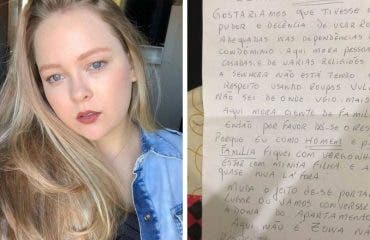 GOSTARIAMOS QUE TIVESSE O
PUDOR E DECÊNCIA DE USAR ROU
ADEQUADAS NAS DEPENDÊNCIAS D
CONDOMÍNIO. AQUI MORA PESSOA
CASADAS E DE VÁRIAS RELIGIÕES
A SENHORA NÃO ESTÁ TENDO
RESPEITO USANDO ROUPAS VULG
NÃO SEI DE ONDE VEIO, MAIS
AQUI MORA GENTE DE FAMÍLI
ENTÃO POR FAVOR DÊ-SE O RESP
PORQUE EU COMO HOMEM E P
FAMÍLIA FIQUEI COM VERGONH
ESTAR COM MINHA FILHA E A
QUASE NUA LÁ FORA.
MUDA O JEITO DE SE PORTAR
VAMOS CONVERSA
A DONA DO APARTAMENTO
AQUI NÃO É ZONA NÃ